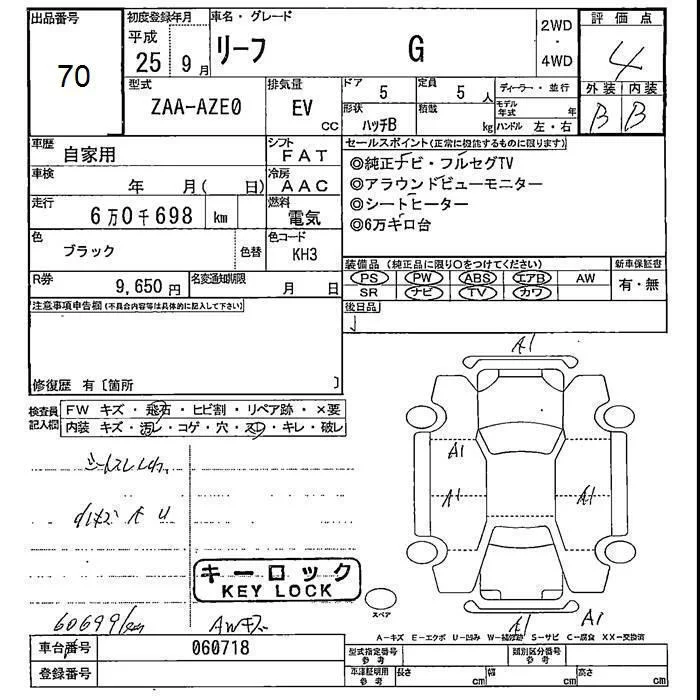 出品番号
70
初度登録年月
平成
25 9月
車名・グレード
リーフ G
2WD
・
4WD
評価点
4
外装 内装
B B
型式
ZAA-AZE0
排気量
EV
cc
ドア 5
定員 5 人
形状
ハッチB
積載
kg
ディーラー・並行
モデル年式 年
ハンドル 左・右
車歴
自家用
シフト
FAT
車検
年 月( 日)
冷房
AAC
走行
6万0千698 km
燃料
電気
色
ブラック
色替
色コード
KH3
R券
9,650円
名変通知期限
月 日
セールスポイント(正常に機能するものに限ります)
◎純正ナビ・フルセグTV
◎アラウンドビューモニター
◎シートヒーター
◎6万キロ台
装備品(純正品に限り○をつけてください)
新車保証書
PS PW ABS エアB AW
SR ナビ TV カワ
有・無
後日品
注意事項申告欄(不具合内容等は具体的に記入して下さい)
修復歴 有〔箇所 〕
検査員
記入欄
FW キズ・飛石・ヒビ割・リペア跡・×要
内装 キズ・汚レ・コゲ・穴・スレ・キレ・破レ
60699km
AWキズ
キーロック
KEY LOCK
A1
A1
A1
A1
A1
A1
スペア
A-キズ E-エクボ U-凹み W-補修跡 S-サビ C-腐食 XX-交換済
車台番号
060718
登録番号
型式指定番号
参考
類別区分番号
参考
車庫証明用
参考
長さ cm
幅 cm
高さ cm